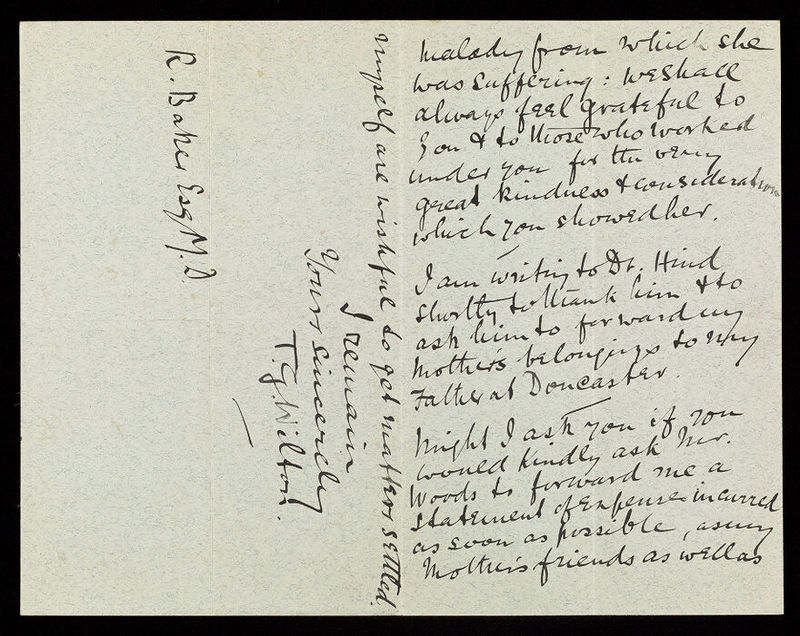 malady from which she
was suffering: we shall
always feel grateful to
you & to those who worked
under you for the very
great kindness & consideration
which you showed her.
I am writing to Dr. Hind
shortly to thank him & to
ask him to forward my
Mother's belongings to my
Father at Doncaster.
Might I ask you if you
would kindly ask Mr.
Woods to forward me a
statement of expenses incurred
as soon as possible, as my
Mother's friends as well as
myself are wishful to get matters settled.
I remain
Yours sincerely
T. G. Wilton.
R. Baker Esq M.D.